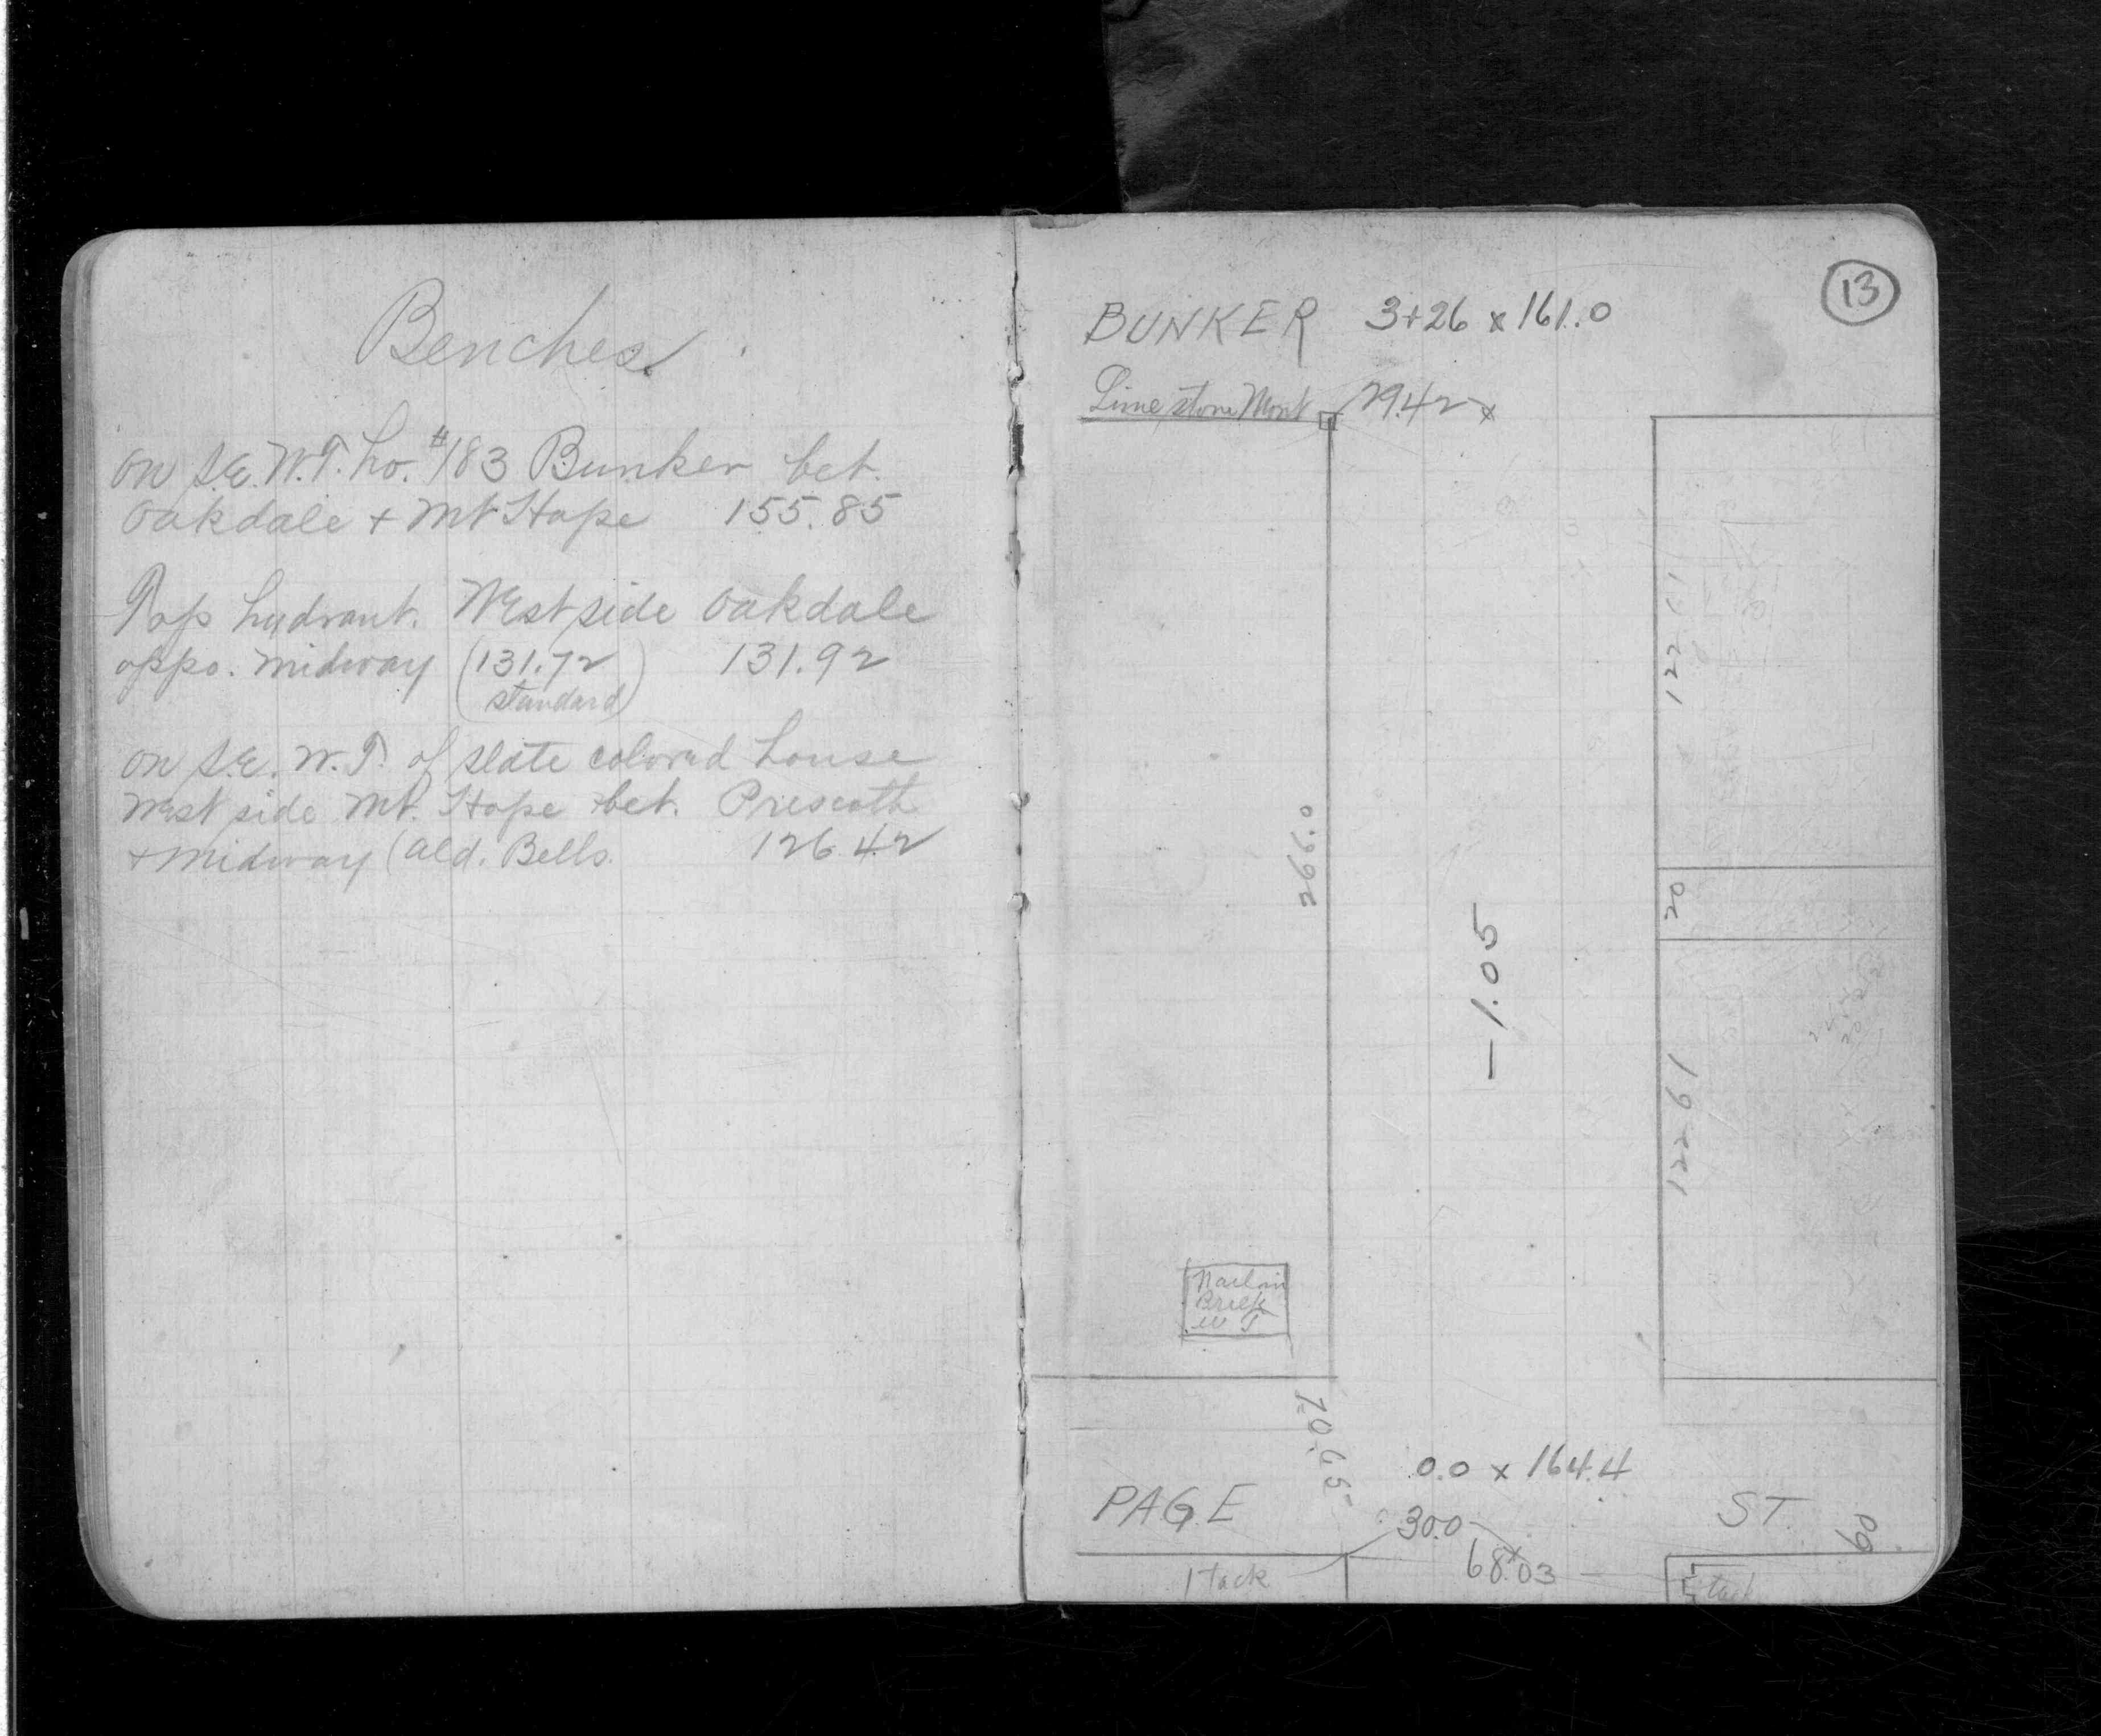 Benches.
on S.E. W.T. ho. #183 Bunker bet.
Oakdale + Mt Hope 155.85
Top hydrant. West side Oakdale
oppo. Midway (131.72 131.92
standard)
on S.E. W.T. of slate colored house
West side Mt. Hope bet. Prescott
+ Midway (Ald. Bells. 126.42
13
BUNKER 3+26 x 161.0
Limestone Mont 29.42 x
266.0
-1.05
20
122.61
Nail in
Brick
W T
70.65
0.0 x 164.4
PAGE ST.
30.0
60
68.03
1 tack
tack